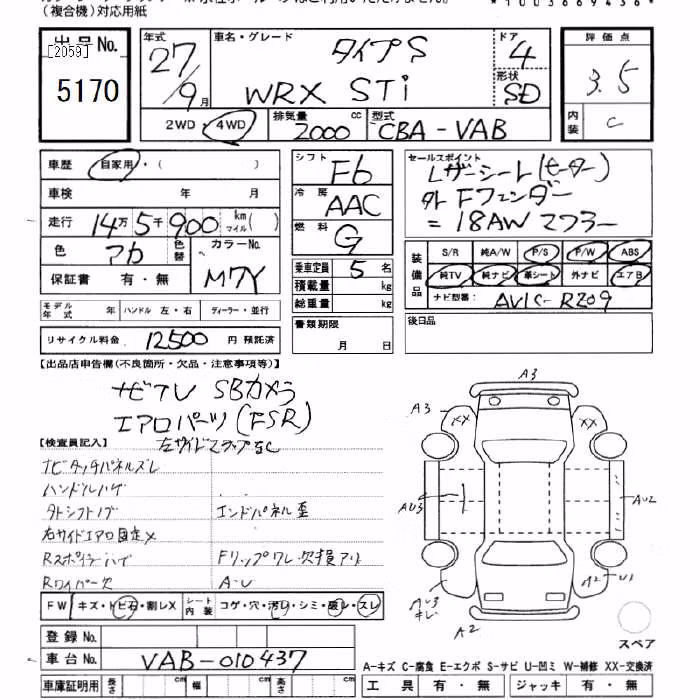 (複合機)対応用紙
*1003669436*
出品No.
[2059]
5170
年式
27/9月
車名・グレード
タイプS
WRX STi
ドア
4
形状
SD
評価点
3.5
内装
C
2WD・4WD
排気量
2000 cc
型式
CBA-VAB
車歴
自家用・( )
車検 年 月
走行
14万5千900 km マイル( )
色
アカ
色替
カラーNo.
M7Y
保証書 有・無
モデル年式 年
ハンドル 左・右
ディーラー・並行
リサイクル料金 12500 円 預託済
シフト
F6
冷房
AAC
燃料
G
乗車定員 5 名
積載量 kg
総重量 kg
書類期限
月 日
セールスポイント
Lザーシート(ヒーター)
外 Fフェンダー
=18AW マフラー
装備品
S/R 純A/W P/S P/W ABS
純TV 純ナビ 革シート 外ナビ エアB
ナビ型番: AVIC-RZ09
後日品
【出品店申告欄(不良箇所・欠品・注意事項等)】
ナビTV SBカメラ
エアロパーツ(FSR)
【検査員記入】
左サイドステップ
ナビタッチパネルズレ
ハンドルハゲ
外シフトノブ
エンドパネル歪
右サイドエアロ固定×
Rスポイラーハゲ
Fリップワレ欠損アリ
Rワイパー欠
A・U
FW キズ・トビ石・割レX
シート内装 コゲ・穴・汚レ・シミ・破レ・スレ
登録No.
車台No. VAB-010437
車庫証明用 長さ cm 幅 cm 高さ cm
A3
A3
XX
XX
AU3
AU2
AU3
キレ
A2 U1
A2
スペア
A-キズ C-腐食 E-エクボ S-サビ U-凹ミ W-補修 XX-交換済
工具 有・無 ジャッキ 有・無